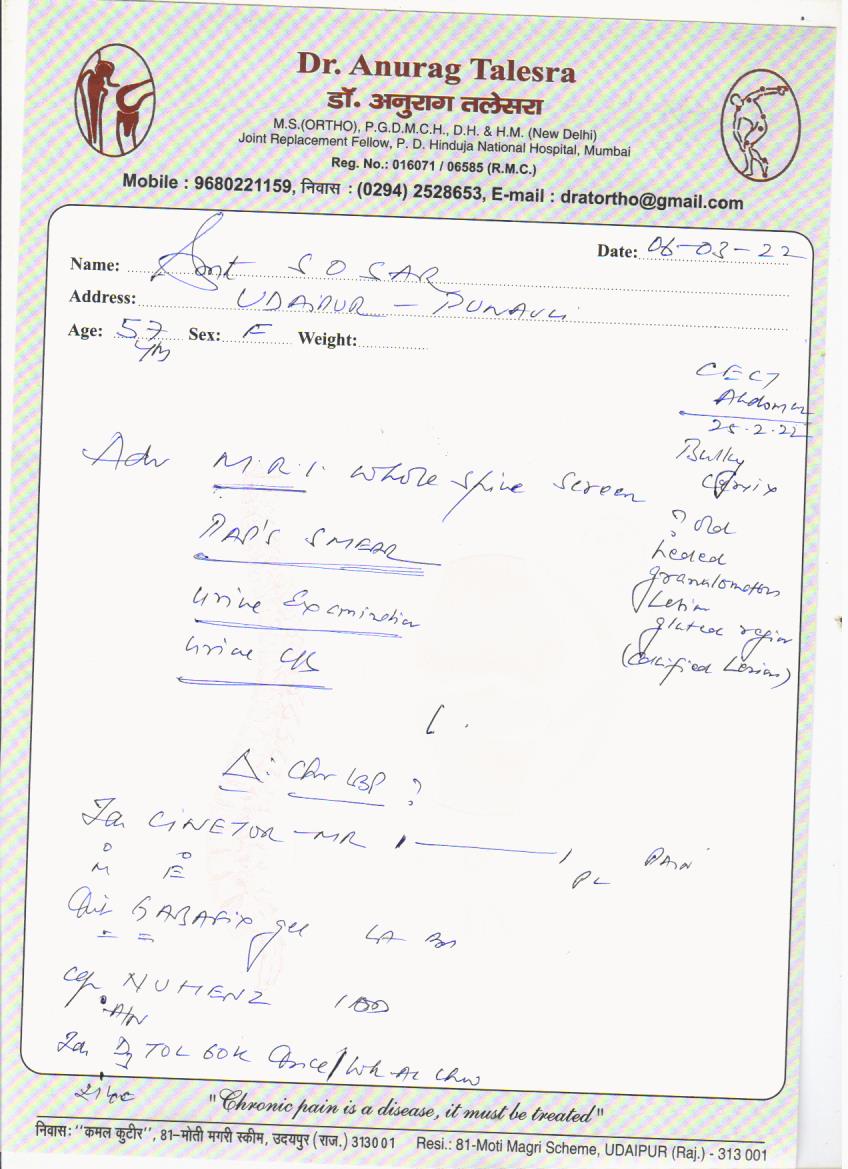 Dr. Anurag Talesra
डॉ. अनुराग तलेसरा
M.S.(ORTHO), P.G.D.M.C.H., D.H. & H.M. (New Delhi)
Joint Replacement Fellow, P. D. Hinduja National Hospital, Mumbai
Reg. No.: 016071 / 06585 (R.M.C.)
Mobile : 9680221159, निवास : (0294) 2528653, E-mail : dratortho@gmail.com
Date: 06-03-22
Name: Smt SOSAR
Address: UDAIPUR - PUNAVLI
Age: 57 Sex: F Weight:
CECT
Abdomen
25.2.22
Bulky
Cervix
? Old
healed
granulomatous
Lesion
gluteal region
(Calcified Lesions)
Adv M.R.I. whole spine screen
PAP'S SMEAR
Urine Examination
Urine C/S
Δ: Chr LBP ?
CINETOR-MR 1 1 PAIN
M E
GABAFIX gel LA
Cap NUHENZ
TOL 60K Once/wk
"Chronic pain is a disease, it must be treated"
निवास: "कमल कुटीर", 81-मोती मगरी स्कीम, उदयपुर (राज.) 313001 Resi.: 81-Moti Magri Scheme, UDAIPUR (Raj.) - 313 001